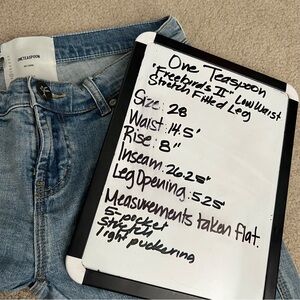 ONETEASPOON
One Teaspoon
"Freebirds II" Low Waist
Stretch Fitted Leg
Size: 28
Waist: 14.5"
Rise: 8"
Inseam: 26.25"
Leg Opening: 5.25"
Measurements taken flat.
5-pocket
Stretch
light puckering